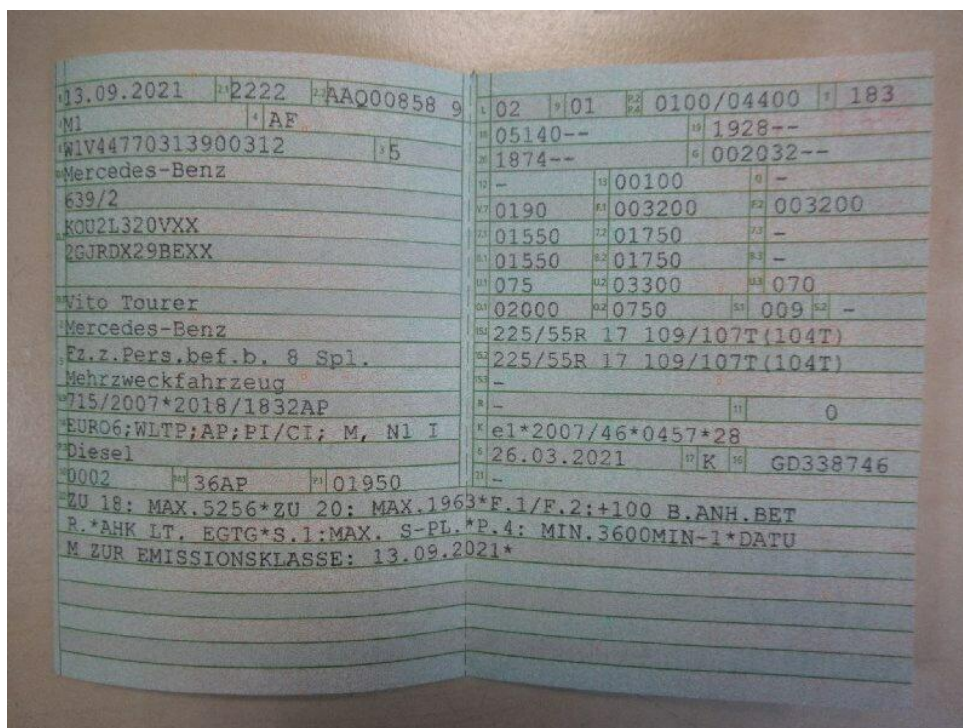 13.09.2021 2.1 2222 2.2 AAQ00858 9
M1 4 AF
W1V44770313900312 3 5
Mercedes-Benz
639/2
KOU2L320VXX
2GJRDX29BEXX
Vito Tourer
Mercedes-Benz
Fz.z.Pers.bef.b. 8 Spl.
Mehrzweckfahrzeug
715/2007*2018/1832AP
EURO6;WLTP;AP;PI/CI; M, N1 I
Diesel
10 0002 14.1 36AP P.1 01950
L 02 9 01 P.2 P.4 0100/04400 T 183
18 05140-- 19 1928--
20 1874-- G 002032--
12 - 13 00100 Q -
V.7 0190 F.1 003200 F.2 003200
7.1 01550 7.2 01750 7.3 -
8.1 01550 8.2 01750 8.3 -
U.1 075 U.2 03300 U.3 070
O.1 02000 O.2 0750 S.1 009 S.2 -
15.1 225/55R 17 109/107T(104T)
15.2 225/55R 17 109/107T(104T)
15.3 -
R - 11 0
K e1*2007/46*0457*28
6 26.03.2021 17 K 16 GD338746
21 -
22 ZU 18: MAX.5256*ZU 20: MAX.1963*F.1/F.2:+100 B.ANH.BET
R.*AHK LT. EGTG*S.1:MAX. S-PL.*P.4: MIN.3600MIN-1*DATU
M ZUR EMISSIONSKLASSE: 13.09.2021*